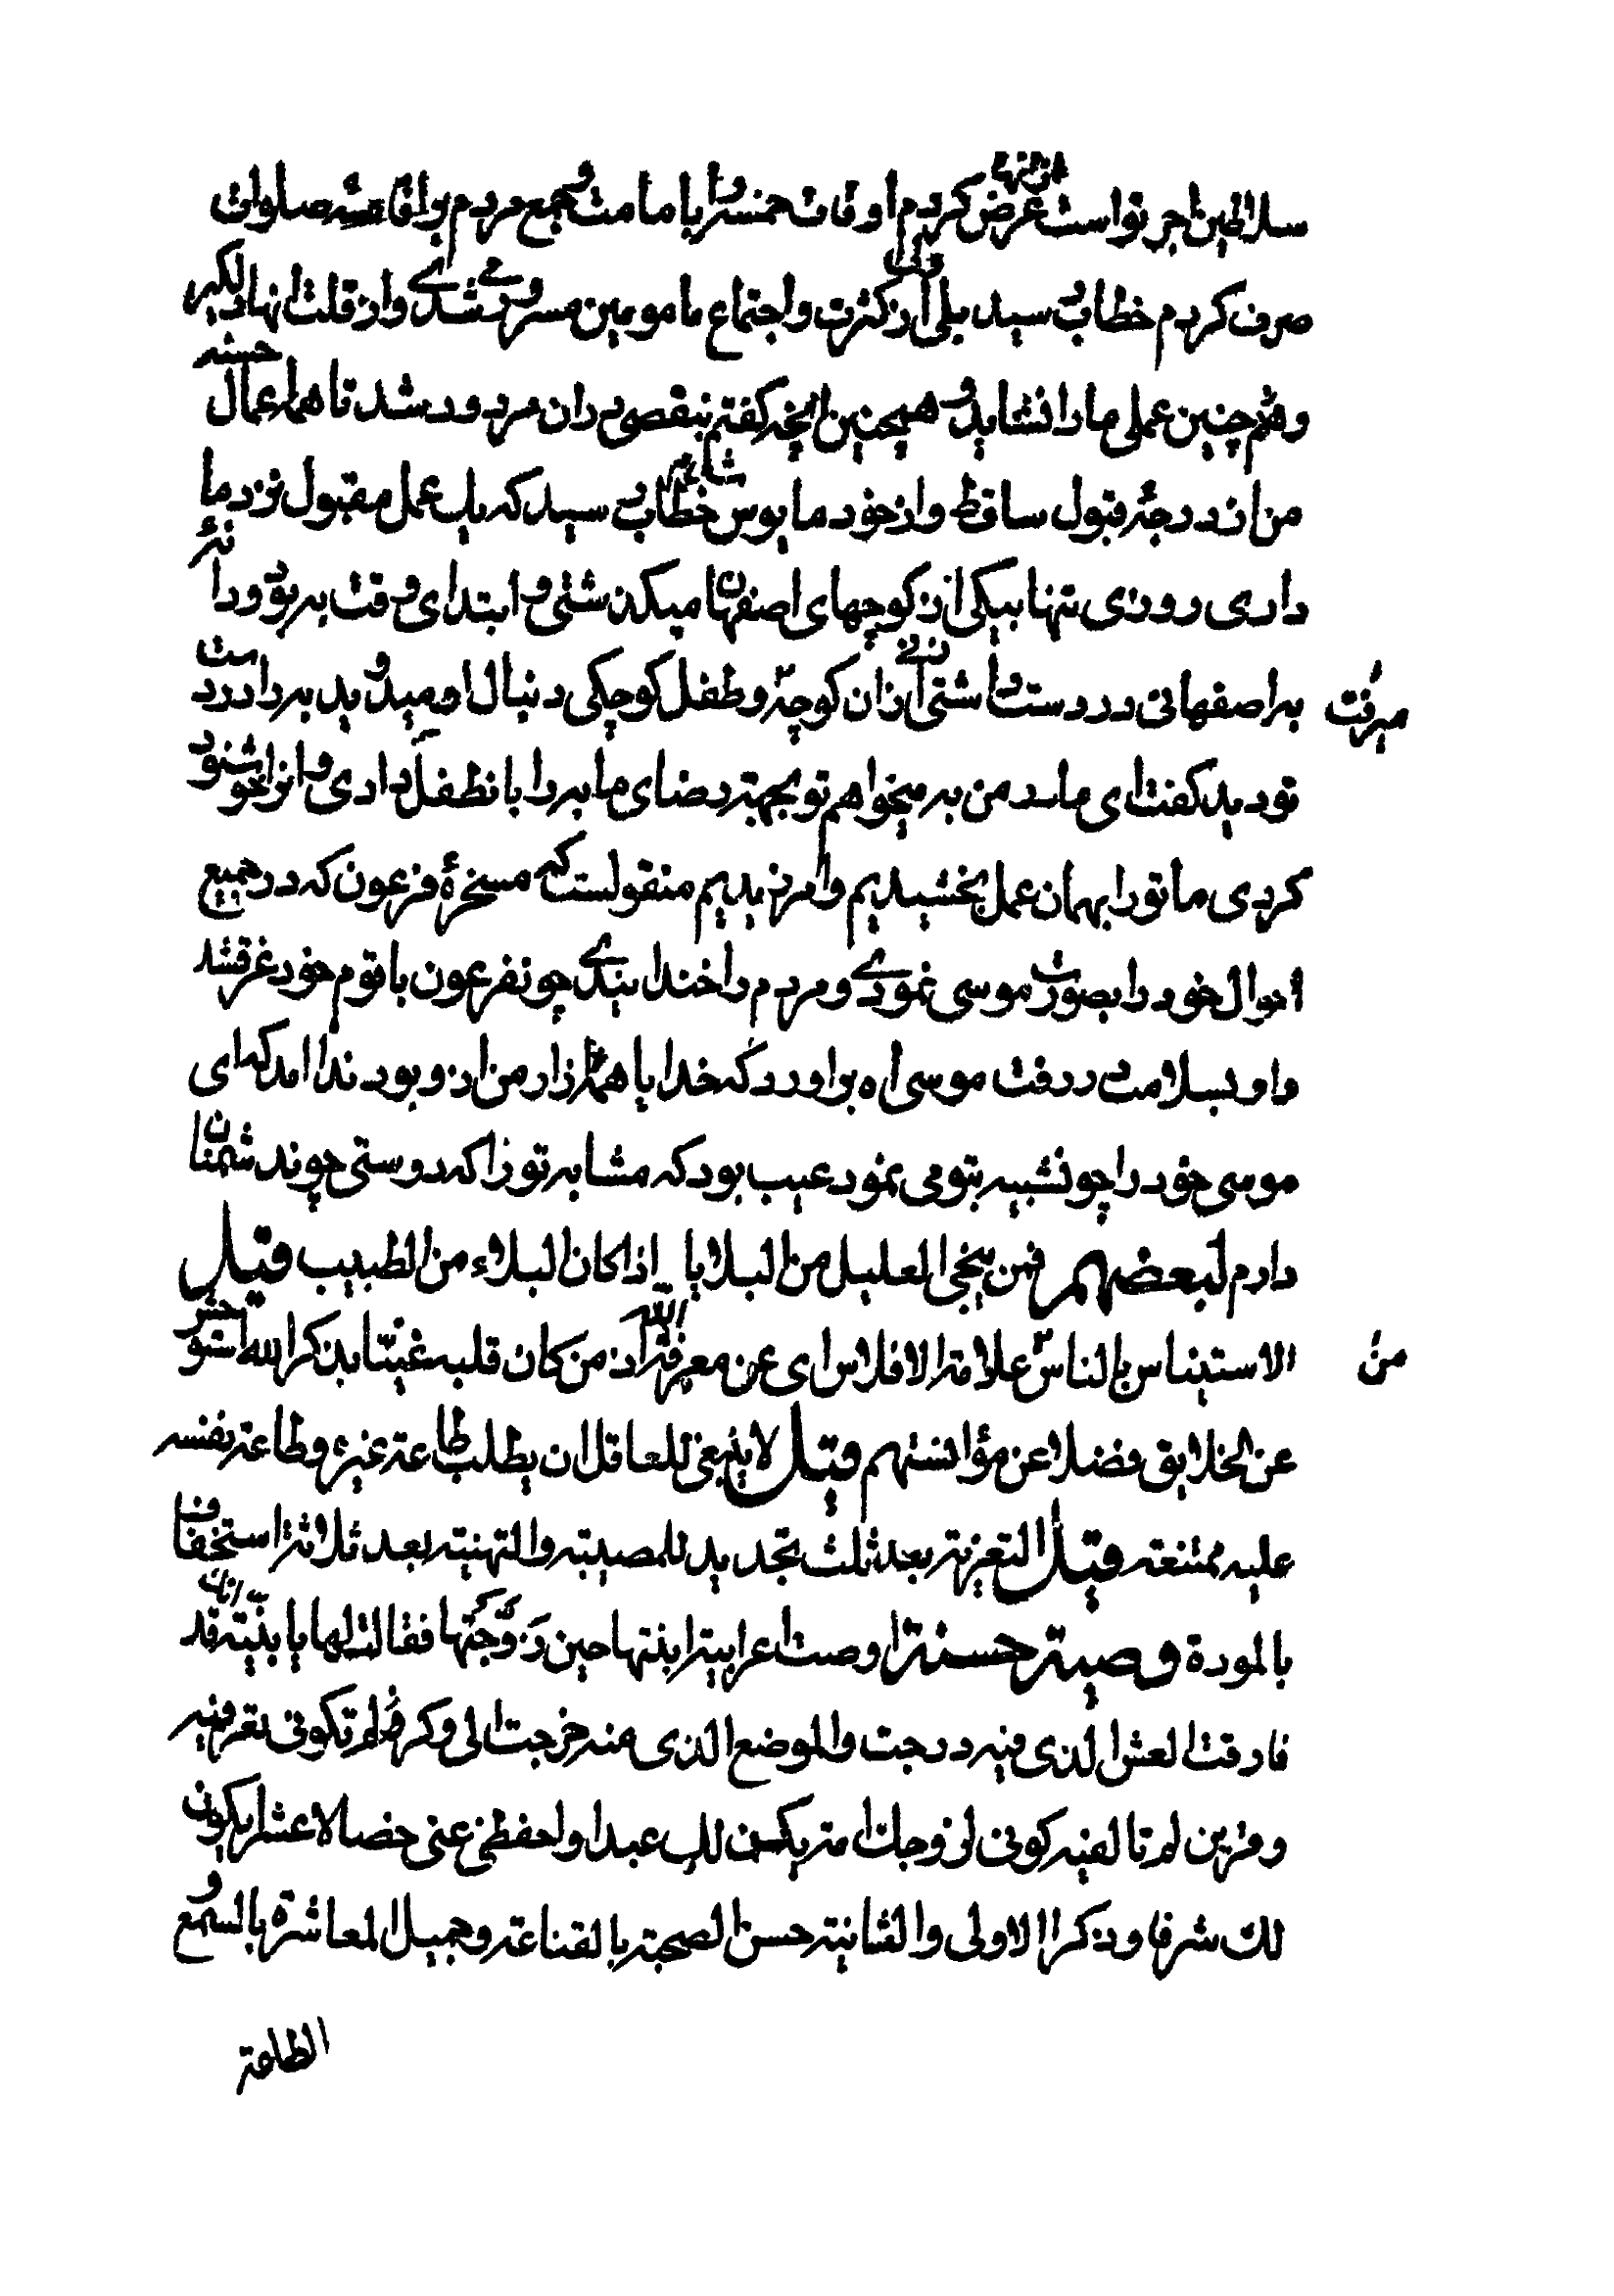 سلاطین اجر تواست عرض کردم اوقات خمسه را بامامت و جمع مردم براقامتهٔ صلوات
صرف کردم خطاب رسید بلی از کثرت واجتماع مامومین مسرور می شدی وازقلت انها دلکیر
وهم چنین عملی مارا نشاید و همچنین انچه کفتم بنقصی دران مردود شد تا همه اعمال حسنه
من ازدرجهٔ قبول ساقط وازخود مایوس شدم خطاب رسید که یک عمل مقبول نزد ما
داری روزی تنها بیکی ازکوچهای اصفهان میکذشتی و ابتدای وقت به بود و دانهٔ
به اصفهانی دردست داشتی زنی ازان کوچه میرفت و طفل کوچکی دنبال او میدوید به رادردست
تودید کفت ای مادر من به میخواهم تو بجهته رضای ما به را بانطفل دادی و انرا خوشنود
کردی ما تورا بهمان عمل بخشیدیم وامرزیدیم منقولست که مسخرهٔ فرعون که درجمیع
احوال خود را بصورت موسی نمودی و مردم را خندانیدی چونفرعون باقوم خود غرقشد
واو بسلامت دررفت موسی اه براورد که خدایا همه ازار من ازو بود ندا امد که ای
موسی خود را چونشبیه بتومی نمود عیب بود که مشابه تو را که دوستی چوندشمنان
دارم لبعضهم فمن ینجی العلیل من البلایا اذا کان البلاء من الطبیب قیل
الاستیناس بالناس من علامة الافلاس ای عن معرفة الله اذ من کان قلبه غنیّا بذکر الله استوحش
عن الخلایق فضلا عن مؤانستهم قیل لا ینبغی للعاقل ان یطلب طاعة غیره وطاعة نفسه
علیه ممتنعة قیل التعزیة بعد ثلث تجدید للمصیبة والتهنیة بعد ثلاثة استخفاف
بالمودة وصیة حسنة اوصت اعرابیة ابنتها حین زَوَّجَتها فقالت لها یا بنیّة انک قد
فارقت العش الذی فیه درجت والموضع الذی منه خرجت الی وکر لم تکونی تعرفیه
وقرین لم تالفیه کونی لزوجک امة یکن لک عبدا واحفظی عنی خصالا عشرا یکون
لک شرفا وذکرا الاولی والثانیة حسن الصحبة بالقناعة وجمیل المعاشرة بالسمع و
الطاعة